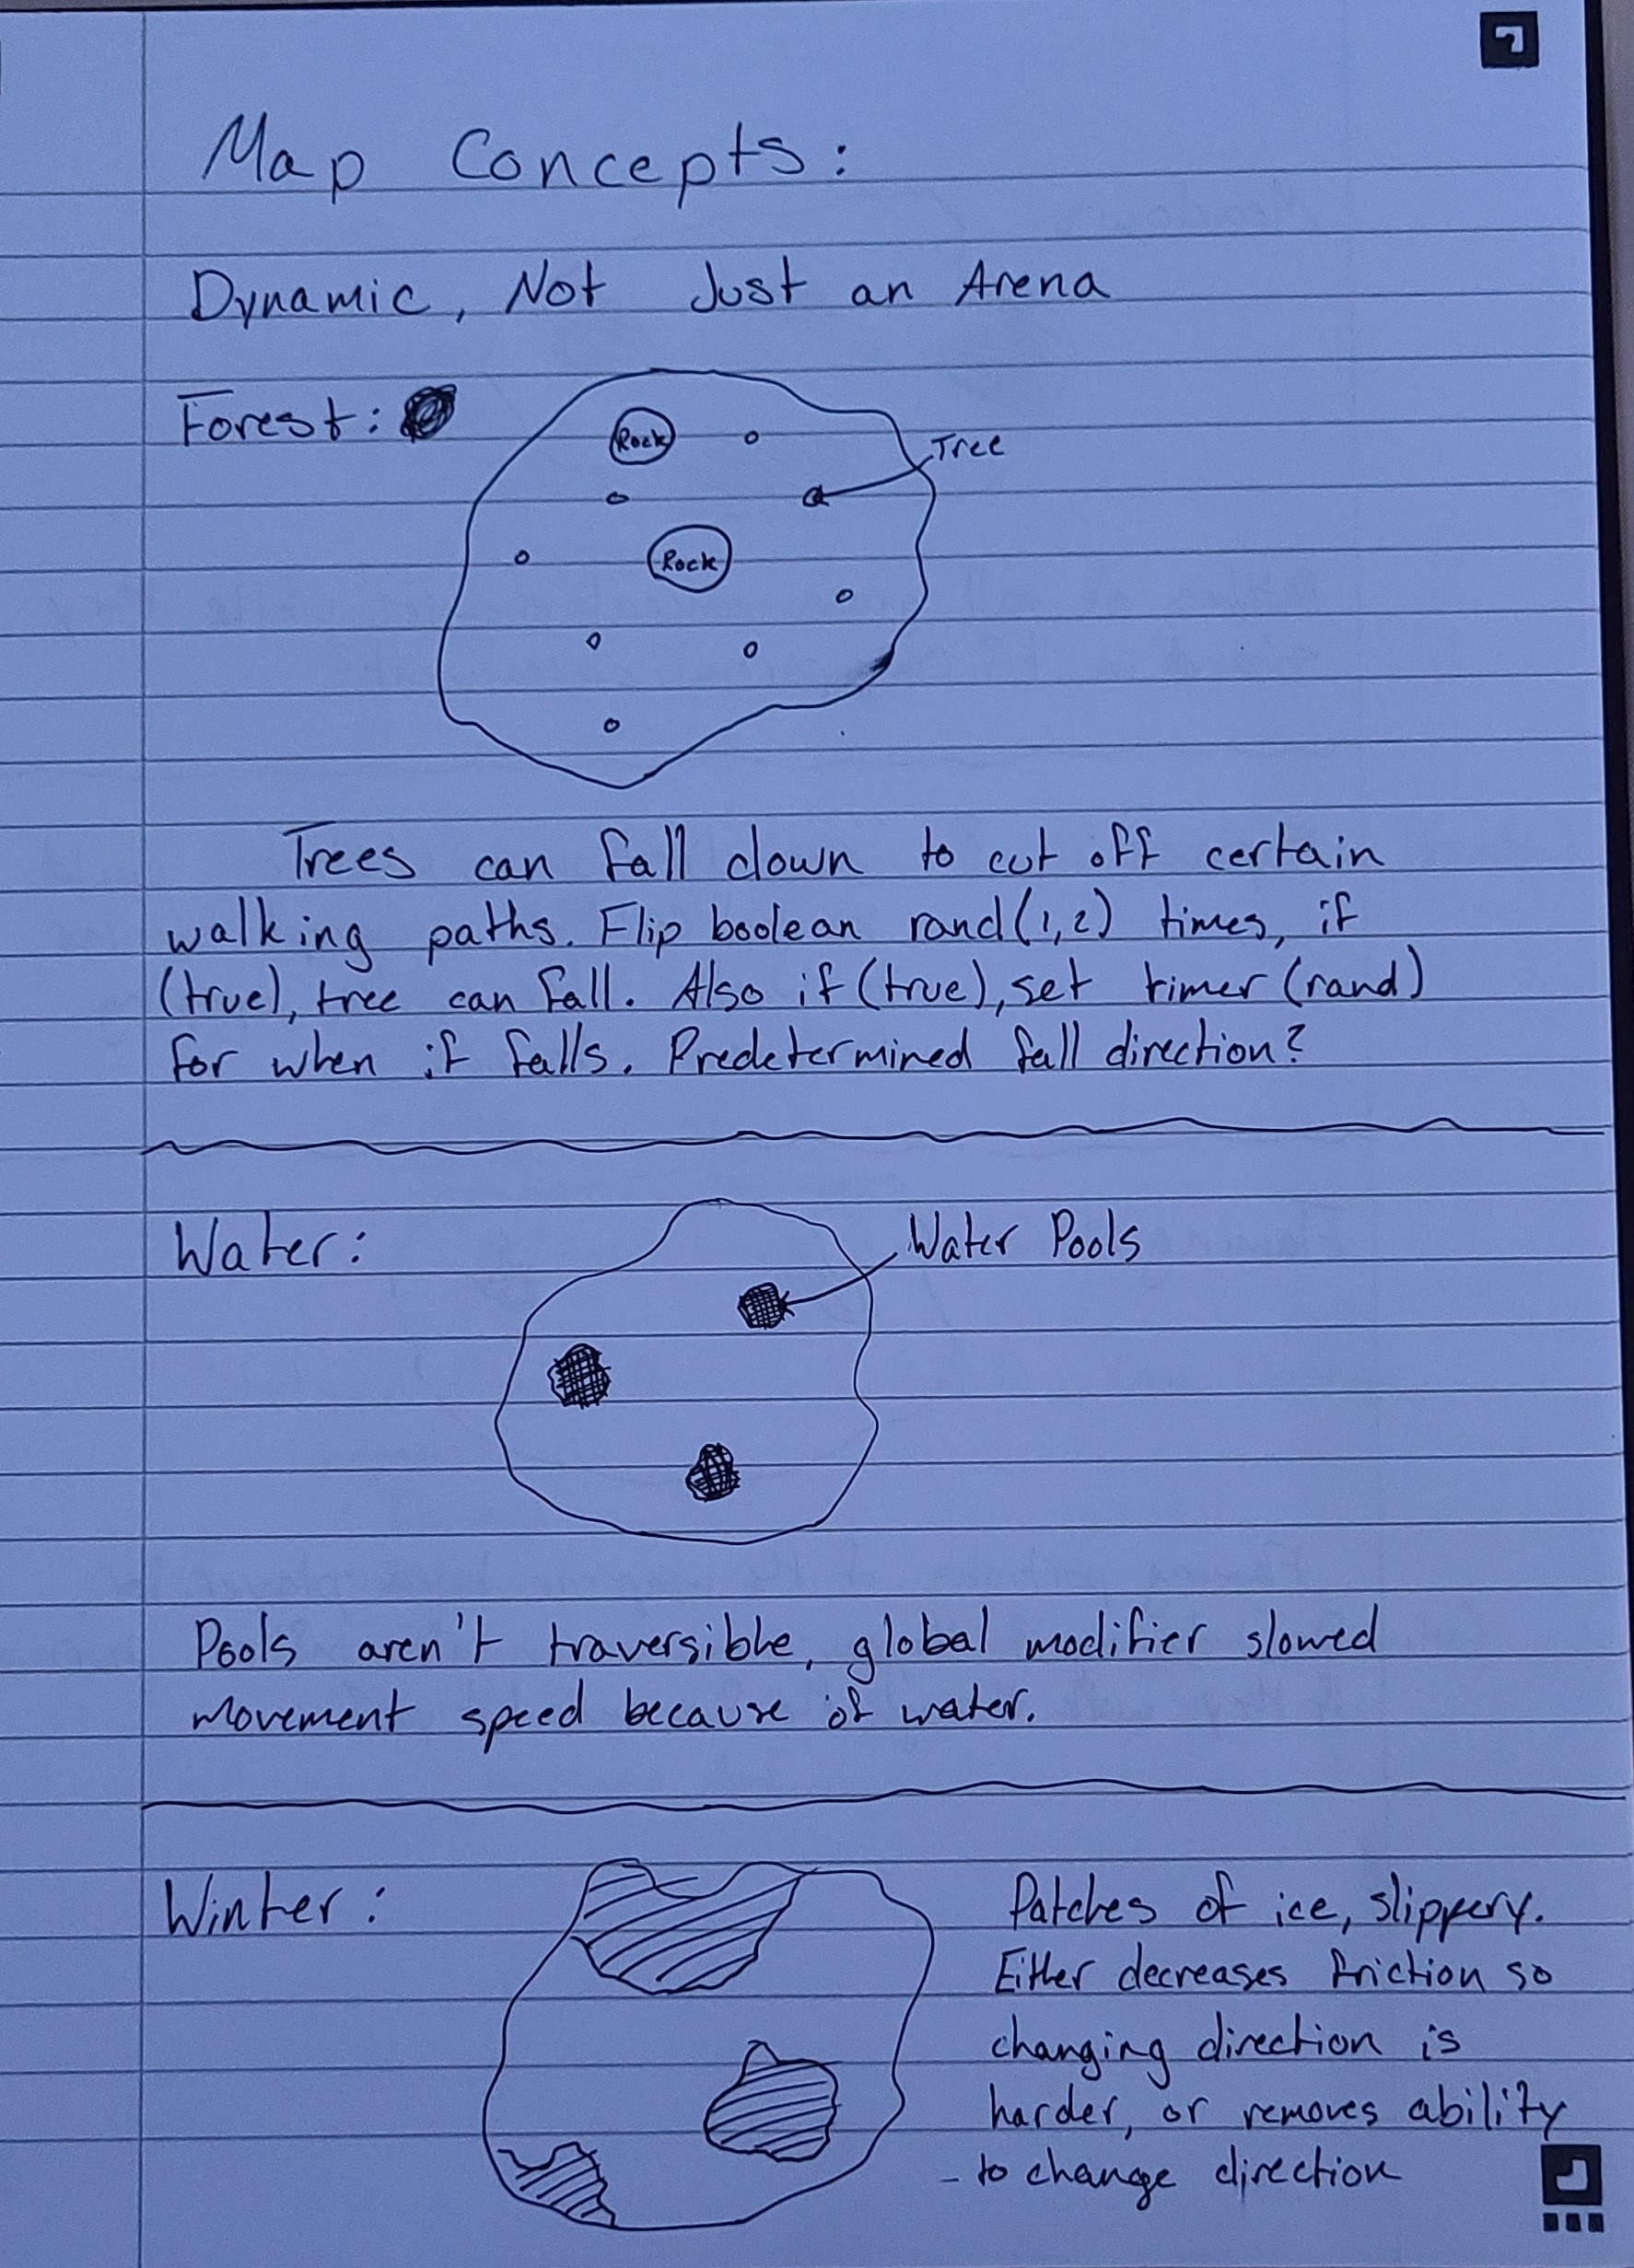 Map Concepts:
Dynamic, Not Just an Arena
Forest:
Rock
Tree
Rock
Trees can fall down to cut off certain
walking paths. Flip boolean rand(1,2) times, if
(true), tree can fall. Also if (true), set timer (rand)
for when it falls. Predetermined fall direction?
Water:
Water Pools
Pools aren't traversible, global modifier slowed
movement speed because of water.
Winter:
Patches of ice, slippery.
Either decreases friction so
changing direction is
harder, or removes ability
- to change direction